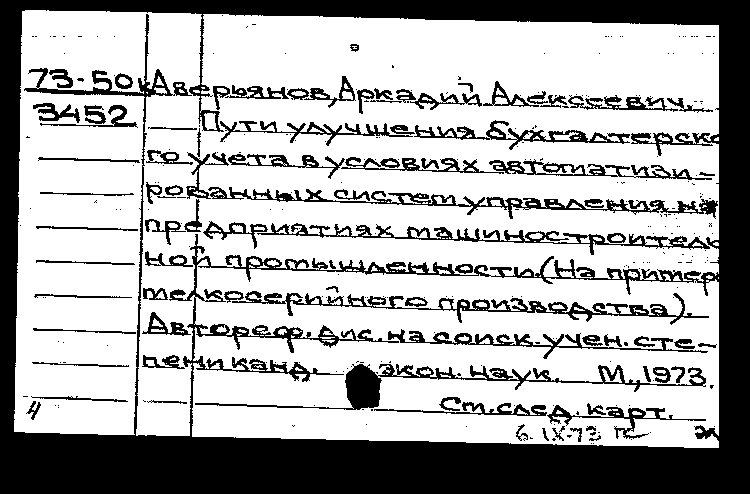 73-50к Аверьянов, Аркадий Алексеевич.
3452 Пути улучшения бухгалтерско
го учета в условиях автоматизи-
рованных систем управления на
предприятиях машиностроитель
ной промышленности. (На примере
мелкосерийного производства).
Автореф. дис. на соиск. учен. сте-
пени канд. экон. наук. М., 1973.
См. след. карт.
4 6.IX-73